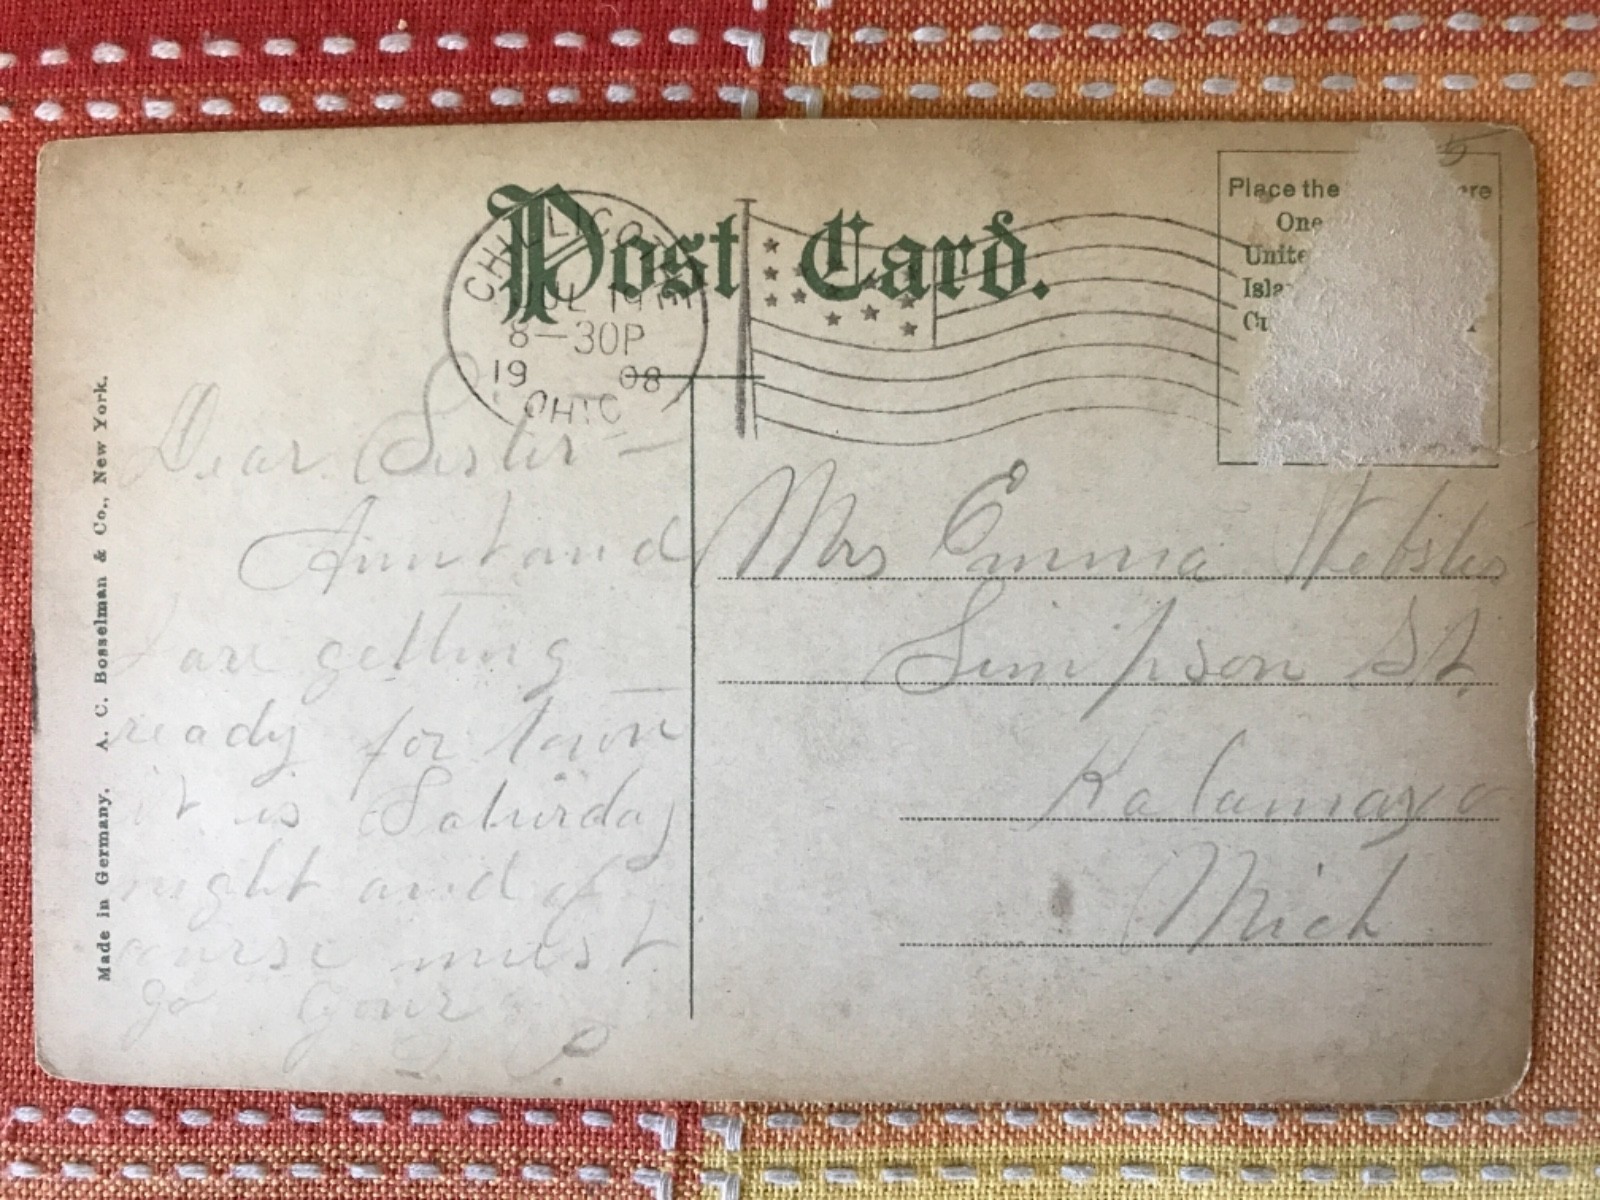 Post Card.
CHILLICOTHE
JUL 19
8-30P
19 08
OHIO
Place the ere
One
Unite
Isla
Made in Germany. A. C. Bosselman & Co., New York.
Dear Sister —
Aunt and
I are getting
ready for town
it is Saturday
night and of
course must
go Your
Mrs Emma Webster
Simpson St.
Kalamazoo
Mich